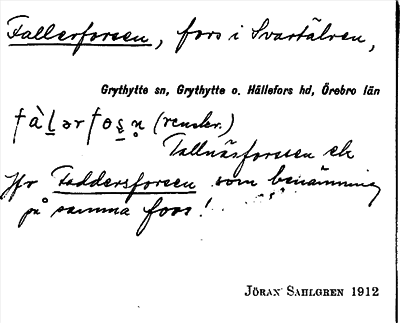 Fallerforsen, fors i Svartälven,
Grythytte sn, Grythytte o. Hällefors hd, Örebro län
fàl̲ər fos̲n̥
Fallnäsforsen ek
Jfr Faddersforsen som benämning
på samma fors!
JÖRAN SAHLGREN 1912